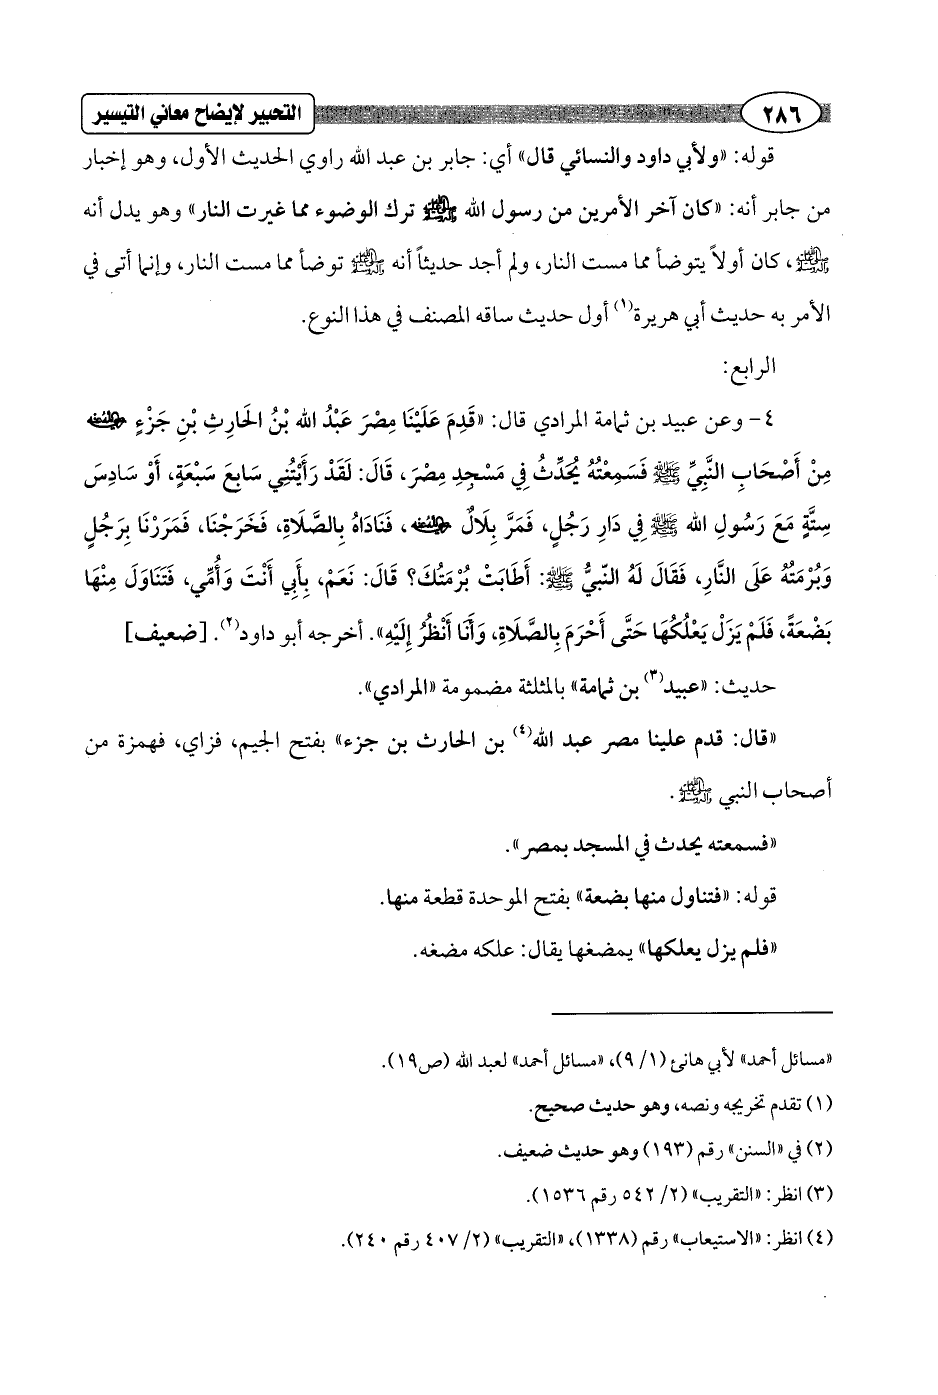 ٢٨٦
التحبير لإيضاح معاني التيسير
قوله: «ولأبي داود والنسائي قال» أي: جابر بن عبد الله راوي الحديث الأول، وهو إخبار
من جابر أنه: «كان آخر الأمرين من رسول الله ﷺ ترك الوضوء مما غيرت النار» وهو يدل أنه
ﷺ، كان أولاً يتوضأ مما مست النار، ولم أجد حديثاً أنه ﷺ توضأ مما مست النار، وإنما أتى في
الأمر به حديث أبي هريرة(١) أول حديث ساقه المصنف في هذا النوع.
الرابع:
٤- وعن عبيد بن ثمامة المرادي قال: «قَدِمَ عَلَيْنَا مِصْرَ عَبْدُ الله بْنُ الحَارِثِ بْنِ جَزْءٍ رضي الله عنه
مِنْ أَصْحَابِ النَّبِيِّ ﷺ فَسَمِعْتُهُ يُحَدِّثُ فِي مَسْجِدِ مِصْرَ، قَالَ: لَقَدْ رَأَيْتُنِي سَابِعَ سَبْعَةٍ، أَوْ سَادِسَ
سِتَّةٍ مَعَ رَسُولِ الله ﷺ فِي دَارِ رَجُلٍ، فَمَرَّ بِلَالٌ رضي الله عنه، فَنَادَاهُ بِالصَّلَاةِ، فَخَرَجْنَا، فَمَرَرْنَا بِرَجُلٍ
وَبُرْمَتُهُ عَلَى النَّارِ، فَقَالَ لَهُ النَّبِيُّ ﷺ: أَطَابَتْ بُرْمَتُكَ؟ قَالَ: نَعَمْ، بِأَبِي أَنْتَ وَأُمِّي، فَتَنَاوَلَ مِنْهَا
بَضْعَةً، فَلَمْ يَزَلْ يَعْلُكُهَا حَتَّى أَحْرَمَ بِالصَّلَاةِ، وَأَنَا أَنْظُرُ إِلَيْهِ». أخرجه أبو داود(٢). [ضعيف]
حديث: «عبيد(٣) بن ثمامة» بالمثلثة مضمومة «المرادي».
«قال: قدم علينا مصر عبد الله(٤) بن الحارث بن جزء» بفتح الجيم، فزاي، فهمزة من
أصحاب النبي ﷺ.
«فسمعته يحدث في المسجد بمصر».
قوله: «فتناول منها بضعة» بفتح الموحدة قطعة منها.
«فلم يزل يعلكها» يمضغها يقال: علكه مضغه.
«مسائل أحمد» لأبي هانئ (١/ ٩)، «مسائل أحمد» لعبد الله (ص١٩).
(١) تقدم تخريجه ونصه، وهو حديث صحيح.
(٢) في «السنن» رقم (١٩٣) وهو حديث ضعيف.
(٣) انظر: «التقريب» (٢/ ٥٤٢ رقم ١٥٣٦).
(٤) انظر: «الاستيعاب» رقم (١٣٣٨)، «التقريب» (٢/ ٤٠٧ رقم ٢٤٠).